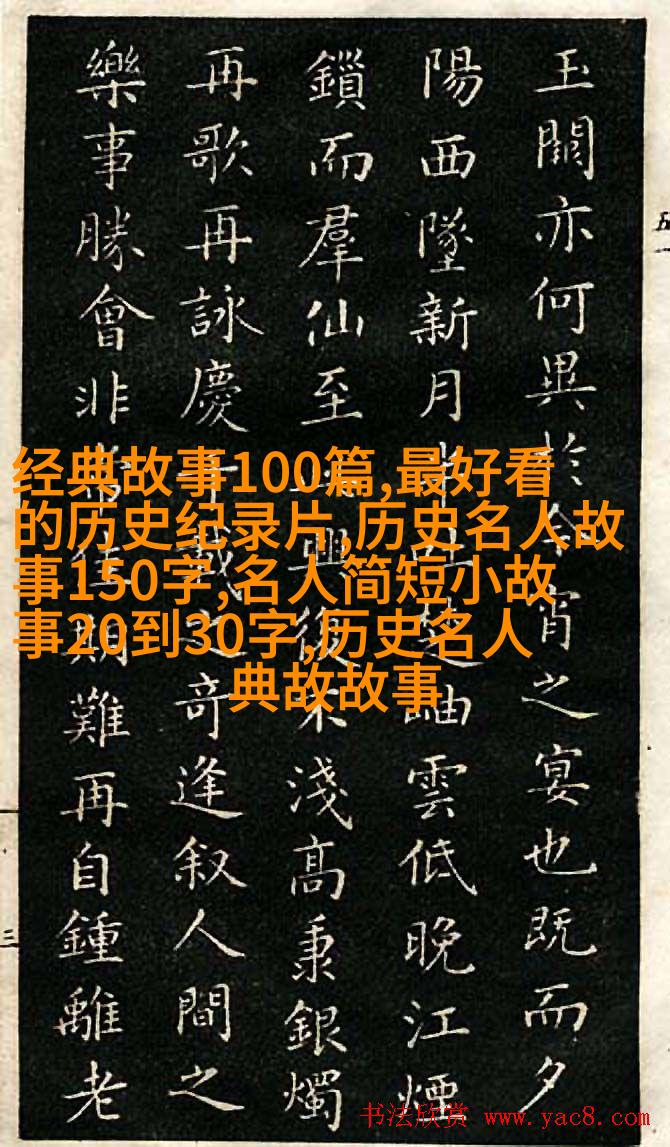 玉闕亦何異於今宵之宴也既而夕
陽西墜新月楚岫雲低晚江煙
鎖而羣仙至興復不淺高秉銀燭
再歌再詠慶千載之奇逢叙人間之
樂事勝會非常佳期難再自鍾離老
经典故事100篇,最好看
的历史纪录片,历史名人故
事150字,名人简短小故
事20到30字,历史名人
典故故事
五
三
书法欣赏 www.yac8.com